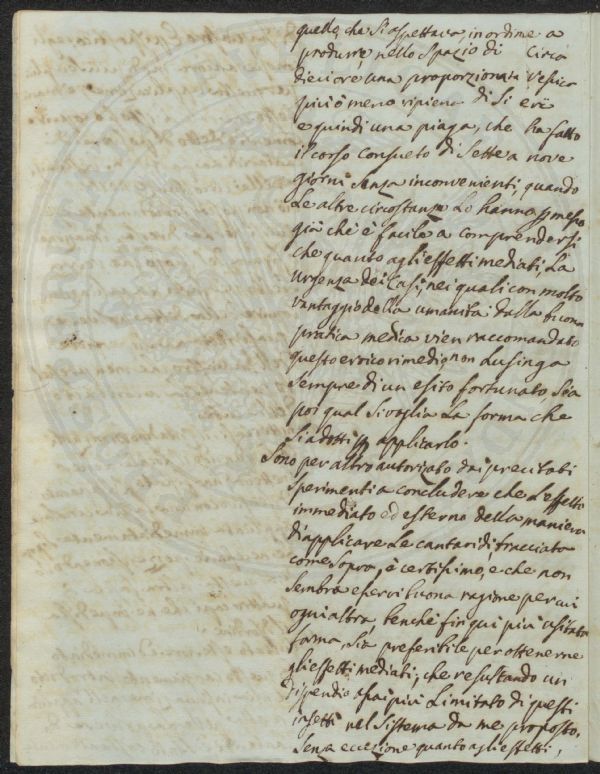 quello, che si aspettava in ordine a
produrre, nello spazio di Circa
dieci ore una proporzionata vesica
più ò meno ripiena di Sieri
e quindi una piaga, che ha fatto
il corso Consueto di Sette a nove
giorni senza inconvenienti, quando
Le altre circostanze Lo hanno pmesso
già chè è facile a comprendersi
che quanto agli effetti mediati, La
Urgenza dei Casi, nei quali con molto
vantaggio della umanità dalla buona
pratica medica vien raccomandato
questo eroico rimedio, non Lusinga
sempre di un esito fortunato sia
poi qual si voglia La forma che
si adotti p applicarlo.
Sono per altro autorizato dai precitati
sperimenti a concludere che L'effetto
immediato ed esterno della maniera
di applicare Le cantaridi, tracciata
come sopra, è certissimo, e che non
sembra esservi buona ragione per cui
ogni altra, benchè fin qui più usitata
forma, sia preferibile per ottenerne
gli effetti mediati, che resultando un
dispendio assai più Limitato di questi
insetti nel Sistema da me proposto,
senza eccezione quanto agli effetti,